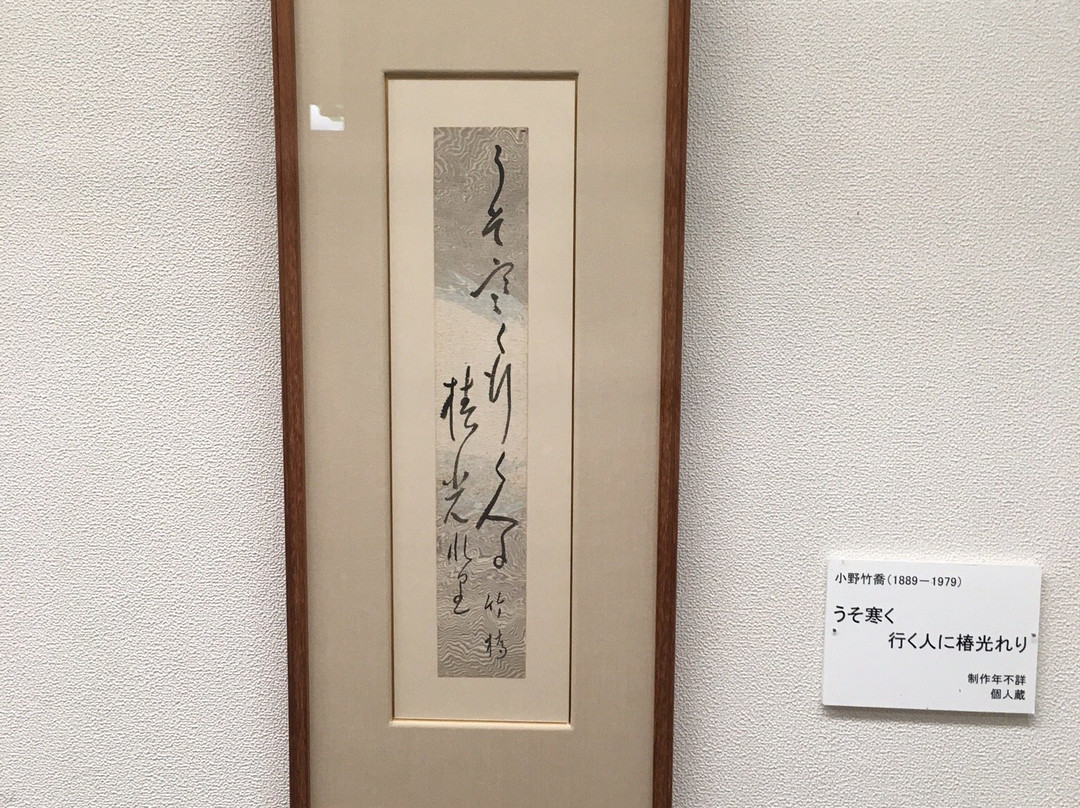 うそ寒く行く人に
椿光れり
竹喬
小野竹喬(1889－1979)
うそ寒く
行く人に椿光れり
制作年不詳
個人蔵